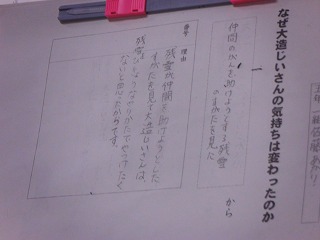 なぜ大造じいさんの気持ちは変わったのか
一
仲間のがんを助けようとする残雪
のすがたを見た
から
番号
理由
残雪が仲間を助けようとした
すがたを見て大造じいさんは、
残雪をひきょうなやりかたでやっつけたく
ないと思ったからです。